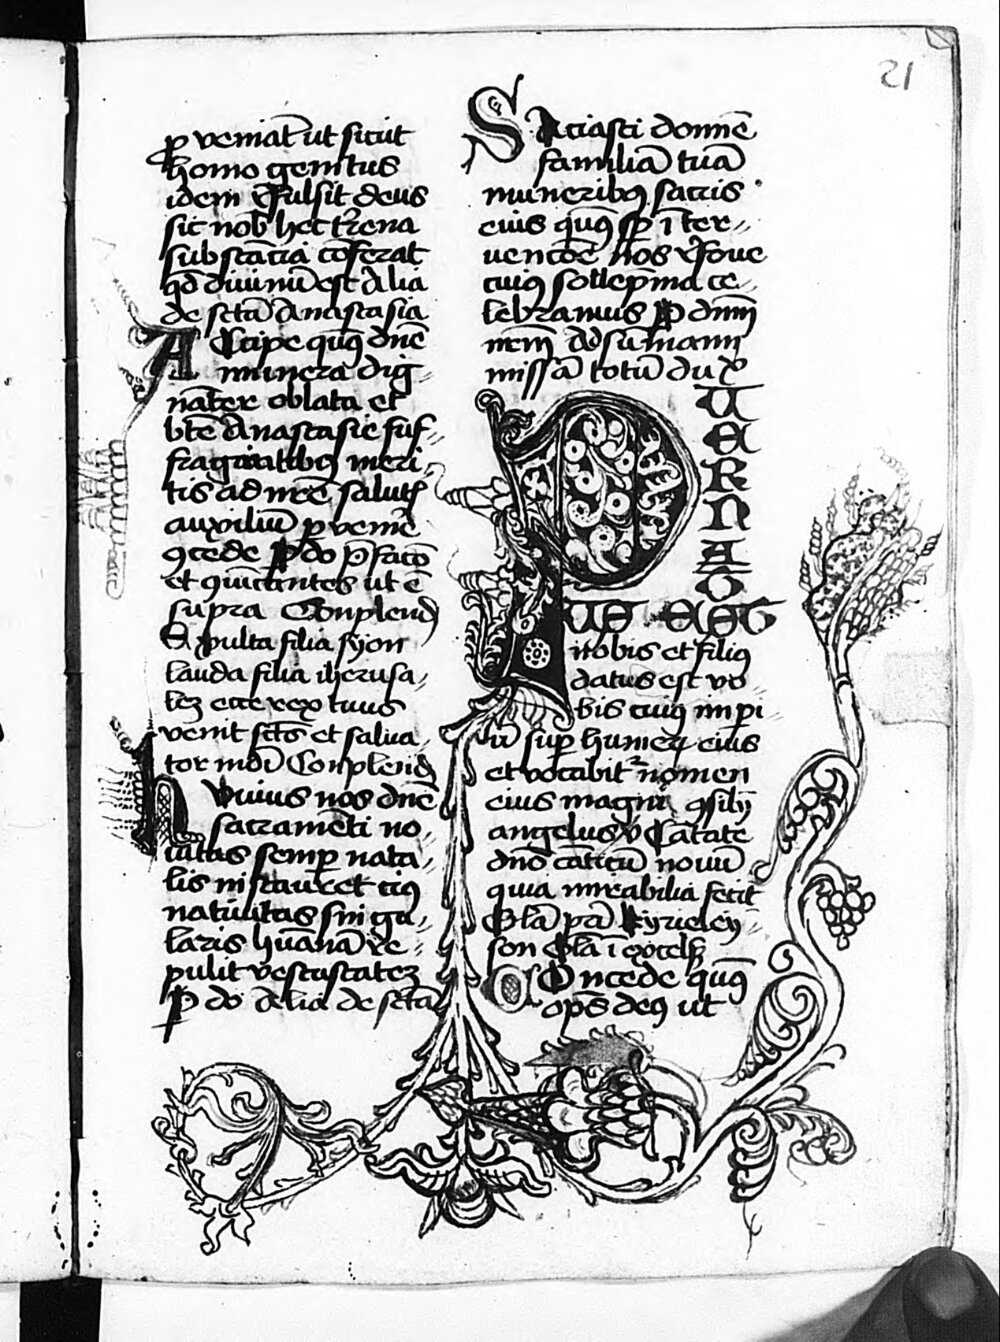 21
ꝑveniat̄ ut sicut
homo genitus
idem refulsit deus
sic nob̄ hec t̄rena
substācia cōferat
qd̄ divinū est Alia
de sc̄tā Anastasia
ACcipe quꝫ dn̄e
munera dig
nāter oblata et
bt̄e Anastasie suf
fragātibꝫ meri
tis ad nr̄e salutꝭ
auxiliū ꝓvenire
ꝯcede P do p̄facō
et ꝯmūicantes ut ē
supra Conplend̄
Exulta filia syon
lauda filia iherusa
leꝫ ecce rex tuus
venit sc̄ts et salva
tor mūdi Conplend̄
Huius nos dn̄e
sacramēti no
vitas semꝑ nata
lis instauret eiꝰ
nativitas singu
laris hūanā re
pulit vestustateꝫ
P do Alia de sc̄tā
Saciasti domīe
familiā tuā
muneribꝫ sacris
eius quꝫ sꝑ īter
vencōe nos refove
cuiꝰ sollēpnia ce
lebramus P dn̄m
nr̄m Ad sūmam
missā totū dux
PUER NA
TUS EST
nobis et filiꝰ
datus est no
bis cuiꝰ inpi
ū suꝑ humeꝝ eius
et vocabit᷑ nomen
eius magni ꝯsilij
angelus v̄ Cātate
dn̄o cāticū novū
quia mirabilia fecit
Gl̄a pr̄i kyrieley
son Gl̄a ī excelꝭ
COncede quꝫ
oр̄s deꝰ ut